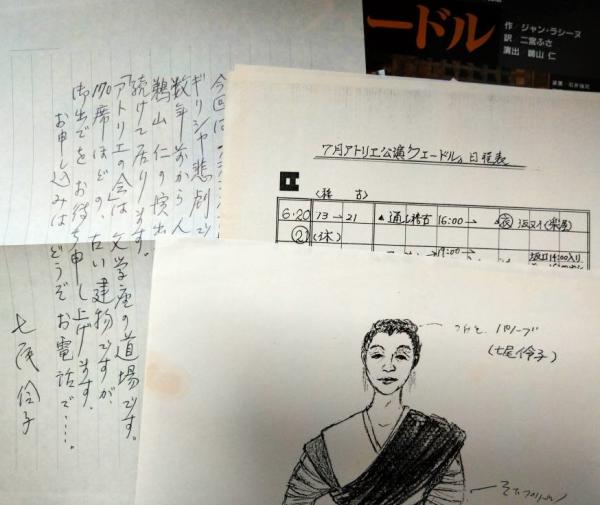 ードル
作 ジャン・ラシーヌ
訳 二宮ふさ
演出 鵜山 仁
今回は
ギリシャ悲劇で
数年前から
鵜山仁の演出
続けて居ります。
「アトリエの会」は、文学座の道場です。
170席ほどの、古い建物ですが
御出でをお待ち申し上げます。
お申し込みはどうぞお電話で‥‥。
七尾伶子
7月アトリエ公演「フェードル」日程表
〈稽 古〉
6.20 13→21 ▲通し稽古 16:00→
② (休)
19:00→
14:00入り
パノープ
(七尾伶子)